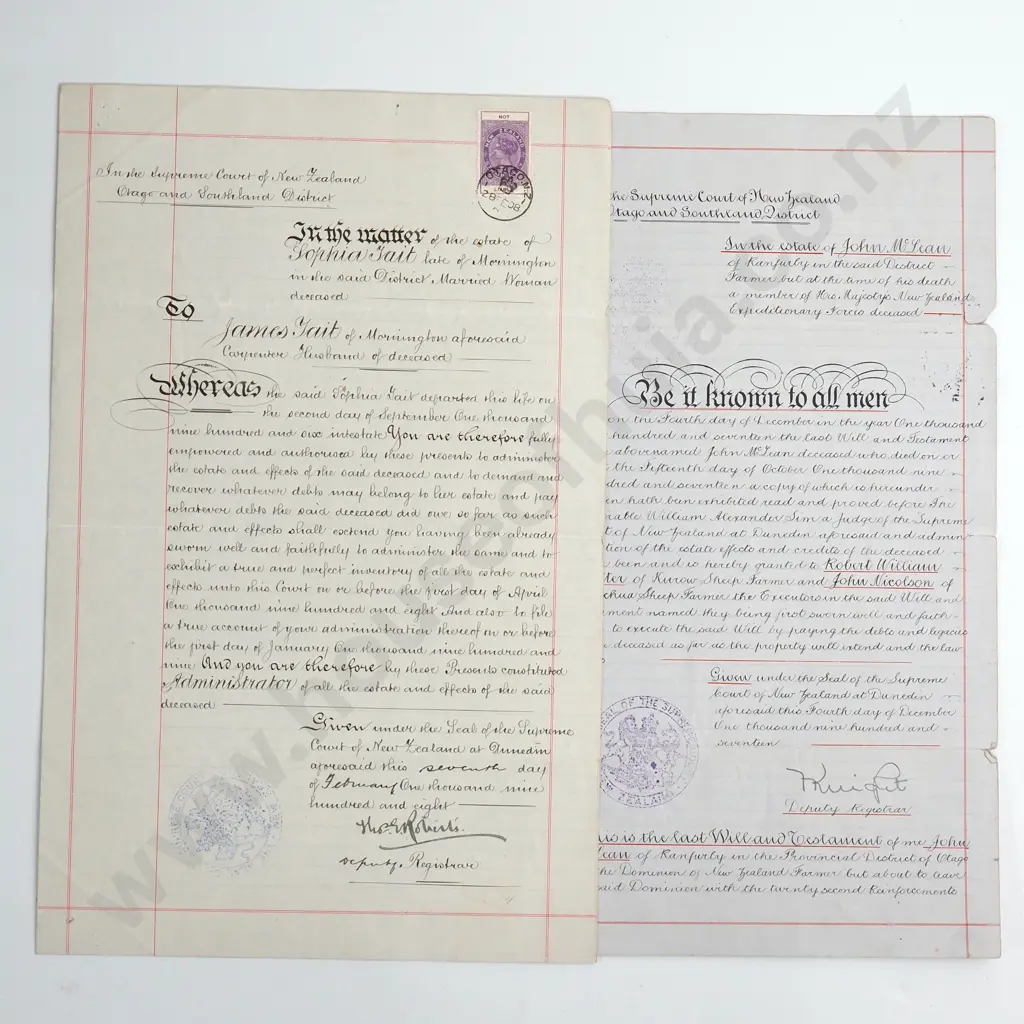 In the Supreme Court of New Zealand
Otago and Southland District
NOT
NEW ZEALAND
OTAGO N.Z
28 FE 08
In the matter of the estate of
Sophia Tait late of Mornington
in the said District Married Woman
deceased
To
James Tait of Mornington aforesaid
Carpenter Husband of deceased
Whereas the said Sophia Tait departed this life on
the second day of September One thousand
nine hundred and six intestate You are therefore fully
empowered and authorised by these presents to administer
the estate and effects of the said deceased and to demand and
recover whatever debts may belong to her estate and pay
whatever debts the said deceased did owe so far as such
estate and effects shall extend you having been already
sworn well and faithfully to administer the same and to
exhibit a true and perfect inventory of all the estate and
effects unto this Court on or before the first day of April
One thousand nine hundred and eight And also to file
a true account of your administration thereof on or before
the first day of January One thousand nine hundred and
nine And you are therefore by these Presents constituted
Administrator of all the estate and effects of the said
deceased
Given under the Seal of the Supreme
Court of New Zealand at Dunedin
aforesaid this seventh day
of February One thousand nine
hundred and eight
Thos G Roberts
Deputy Registrar
the Supreme Court of New Zealand
Otago and Southland District
In the estate of John McLean
of Ranfurly in the said District
Farmer but at the time of his death
a member of His Majestys New Zealand
Expeditionary Forces deceased
Be it known to all men
on the Fourth day of December in the year One thousand
hundred and seventeen the last Will and Testament
above named John McLean deceased who died on or
the Fifteenth day of October One thousand nine
dred and seventeen a copy of which is hereunder
en hath been exhibited read and proved before The
rable William Alexander Sim a Judge of the Supreme
t of New Zealand at Dunedin aforesaid and admin
tion of the estate effects and credits of the deceased
been and is hereby granted to Robert William
ter of Kurow Sheep Farmer and John Nicolson of
chua Sheep Farmer the Executors in the said Will and
ment named they being first sworn well and faith-
to execute the said Will by paying the debts and legacies
deceased as far as the property will extend and the law
Given under the Seal of the Supreme
Court of New Zealand at Dunedin
aforesaid this Fourth day of December
One thousand nine hundred and
seventeen
SEAL OF THE SUPREME
NEW ZEALAND
Deputy Registrar
his is the last Will and Testament of me John
Lean of Ranfurly in the Provincial District of Otago
the Dominion of New Zealand Farmer but about to leave
said Dominion with the twenty second Reinforcements